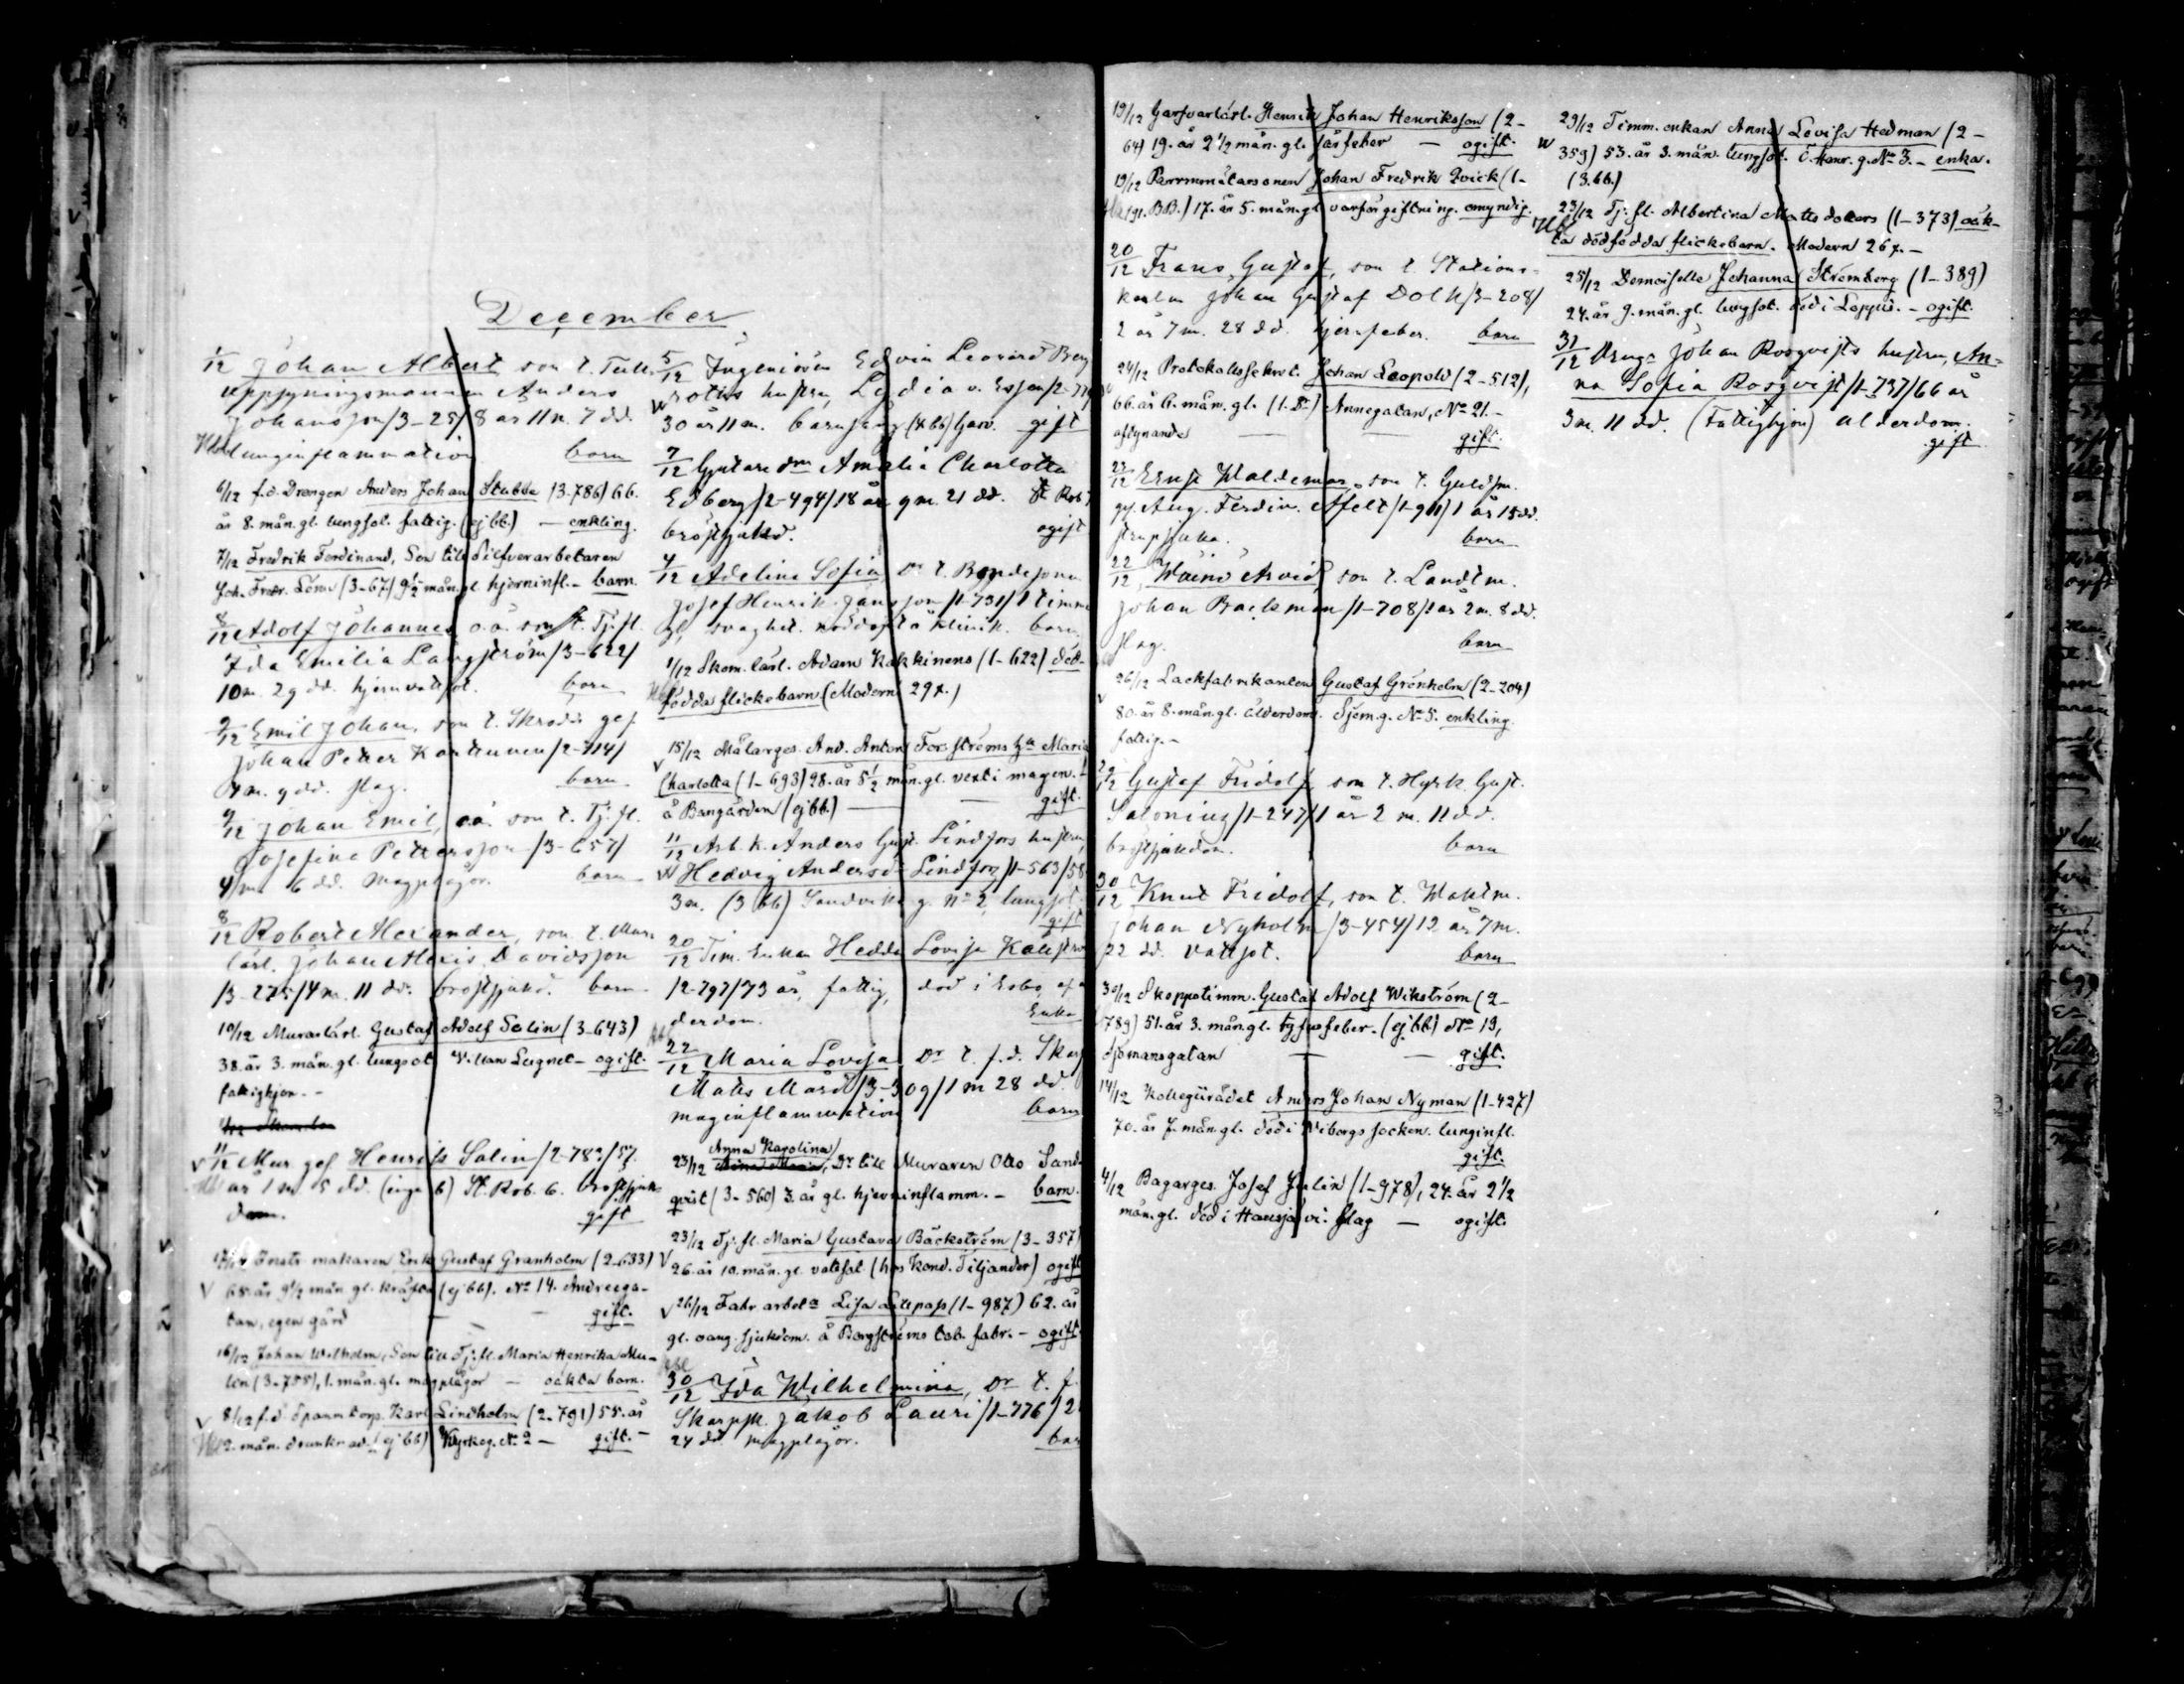 December
1/12 Johan Albert, son t. Tull-
uppsyningsmannen Anders
Johansson /3-25/ 8 år 11 m. 7 dd.
lunginflammation barn
6/12 f.d. Drängen Anders Johan Stubbe (3-786) 66.
år 8. mån. gl. lungsot. fattig. (ej bb.) — enkling.
7/12 Fredrik Ferdinand, Son till Silfverarbetaren
Joh. Fredr. Lönn (3-67) 9 1/2 mån. gl. hjerninfl. - barn.
8/12 Adolf Johannes o.ä. son t. Tj. fl.
Ida Emilia Langström /3-622/
10 m. 29 dd. hjernvattsot. barn
9/12 Emil Johan, son t. Skrädd. ges.
Johan Petter Karttunen /2-714/
4 m. 9 dd. slag. barn
9/12 Johan Emil, o.ä. son t. Tj. fl.
Josefine Pettersson /3-657/
4 m. 6 dd. Magplågor. barn
8/12 Robert Alexander, son t. Mur.
lärl. Johan Alexis Davidsson
/3-275/ 4 m. 11 dd. bröstsjukd. barn
10/12 Murarlärl. Gustaf Adolf Salin (3-643)
38. år 3. mån. gl. lungsot Villan Lugnet - ogift.
fattighjon. -
11/12 Mur. ges. Henrik Salin /2-782/ 57.
år 1 m. 5 dd. (inga bb) St. Rob. 6. bröstsjuk-
dom. gift
Instr. makaren Erik Gustaf Granholm (2-633)
68. år 9 1/2 mån. gl. kräfta (ej bb). No 14. Andreega-
tan, egen gård — gift.
16/12 Johan Wilhelm, Son till Tj. fl. Maria Henrika Mu-
len (3-755), 1. mån. gl. magplågor — oäkta barn.
8/12 f.d. Spannkorp. Karl Lindholm (2-791) 55. år
2. mån. drunknad (ej bb) Kyrkog. No 2 — gift. -
5/12 Ingeniören Edvin Leonard Berg
roths hustru, Lydia v. Essen /2-779
30 år 11 m. barnsäng (4 bb) Garv. gift
7/12 Gjutare dr Amalia Charlotta
Edberg /2-494/ 18 år 9 m. 21 dd. St Rob 7
bröstsjukd. ogift
4/12 Adelina Sofia, Dr t. Bondesonen
Josef Henrik Jansson /1-731/ 1 timme
gl. svaghet. nöddöpta klinik. barn.
1/12 Skom. lärl. Adam Kakkinens (1-622) död-
födda flickebarn (Modern 29 å.)
15/12 Målarges. And. Anton Forsströms Hu Maria
Charlotta (1-693) 28. år 5 1/2 mån. gl. vext i magen. -
å Bangården (ej bb.) — gift.
11/12 Arb. k. Anders Gust. Lindfors hustru,
Hedvig Andersdr Lindfors /1-563/ 58
3 m. (3 bb) Sandviks g. No 2, lungsot.
gift
20/12 Tim. Enkan Hedda Lovisa Kallström
/2-797/ 73 år, fattig, död i Esbo, af ål
derdom. Enka
22/12 Maria Lovisa Dr t. f.d. Skarp
Matts Mård /3-309/ 1 m 28 dd.
maginflammation barn
Anna Karolina
23/12 Dr till Muraren Otto Sand-
qvist (3-560) 3. år gl. hjerninflamm. - barn.
23/12 Tj. fl. Maria Gustava Bäckström (3-357)
26. år 10. mån. gl. vattsot. (hos Kond. Tiljander) ogift
26/12 Fabr. arbet. Lisa Lillpass (1-987) 62. år
gl. oang. sjukdom. å Borgströms tob. fabr. - ogift
30/12 Ida Wilhelmina, Dr t. f.
Skarpsk. Jakob Lauri /1-776/ 2
24 dd. Magplågor. bar
19/12 Garfvarlärl. Henrik Johan Henriksson (2-
64) 19. år 2 1/2 mån. gl. sårfeber — ogift.
19/12 Johan Fredrik Qvick (1-
191. BB.) 17. år 5. mån. gl. varförgiftning. omyndig.
20/12 Frans Gustaf, son t. Stations-
karlen Johan Gustaf Dolk /3-208/
2 år 7 m. 28 dd. hjernfeber. barn
24/12 Protokollssekret. Johan Leopold (2-512),
66. år 6. mån. gl. (1. Dr) Annegatan, No 21. -
aftynande — gift.
22/12 Ernst Waldemar, son t. Guldsm.
ges. Aug. Ferdin. Afelt /1-911/ 1 år 15 dd.
strupsjuka. barn
22/12, Wäinö Arvid, son t. Landtm.
Johan Backman /1-708/ 1 år 2 m. 8 dd.
slag. barn
26/12 Lackfabrikanten Gustaf Grönholm (2-204)
80. år 8. mån. gl. ålderdom. Sjöm. g. No 5. enkling.
fattig. -
Gustaf Fridolf son t. Hyrk. Gust.
Saloning /1-247/ 1 år 2 m. 11 dd.
bröstsjukdom. barn
30/12 Knut Fridolf, son t. Waktm.
Johan Nyholm /3-454/ 12 år 7 m.
22 dd. vattsot. barn
30/12 Skeppstimm. Gustaf Adolf Wikström (2-
789) 51. år 3. mån. gl. tyfusfeber. (ej bb) No 19,
Sjömansgatan — gift.
14/12 Kollegiirådet Anders Johan Nyman (1-427)
70. år 7. mån. gl. död i Wiborgs socken. lunginfl.
gift.
4/12 Bagarges. Josef Julin (1-978), 24. år 2 1/2
mån. gl. död i Hausjärvi. slag — ogift.
29/12 Timm. enkan Anna Lovisa Hedman (2-
359) 53. år 3. mån. lungsot. Ö. Henr. g. No 3. - enka.
(3. bb.)
23/12 Tj. fl. Albertina Matts dotters (1-373) oäk-
ta dödfödda flickebarn. Modern 26 å. -
25/12 Demoiselle Johanna Strömberg (1-389)
24. år 9. mån. gl. lungsot. död i Loppis. - ogift.
31/12 Dreng. Johan Rosqvists hustru, An-
na Sofia Rosqvist /1-737/ 66 år
3 m. 11 dd. (Fattighjon) ålderdom.
gift